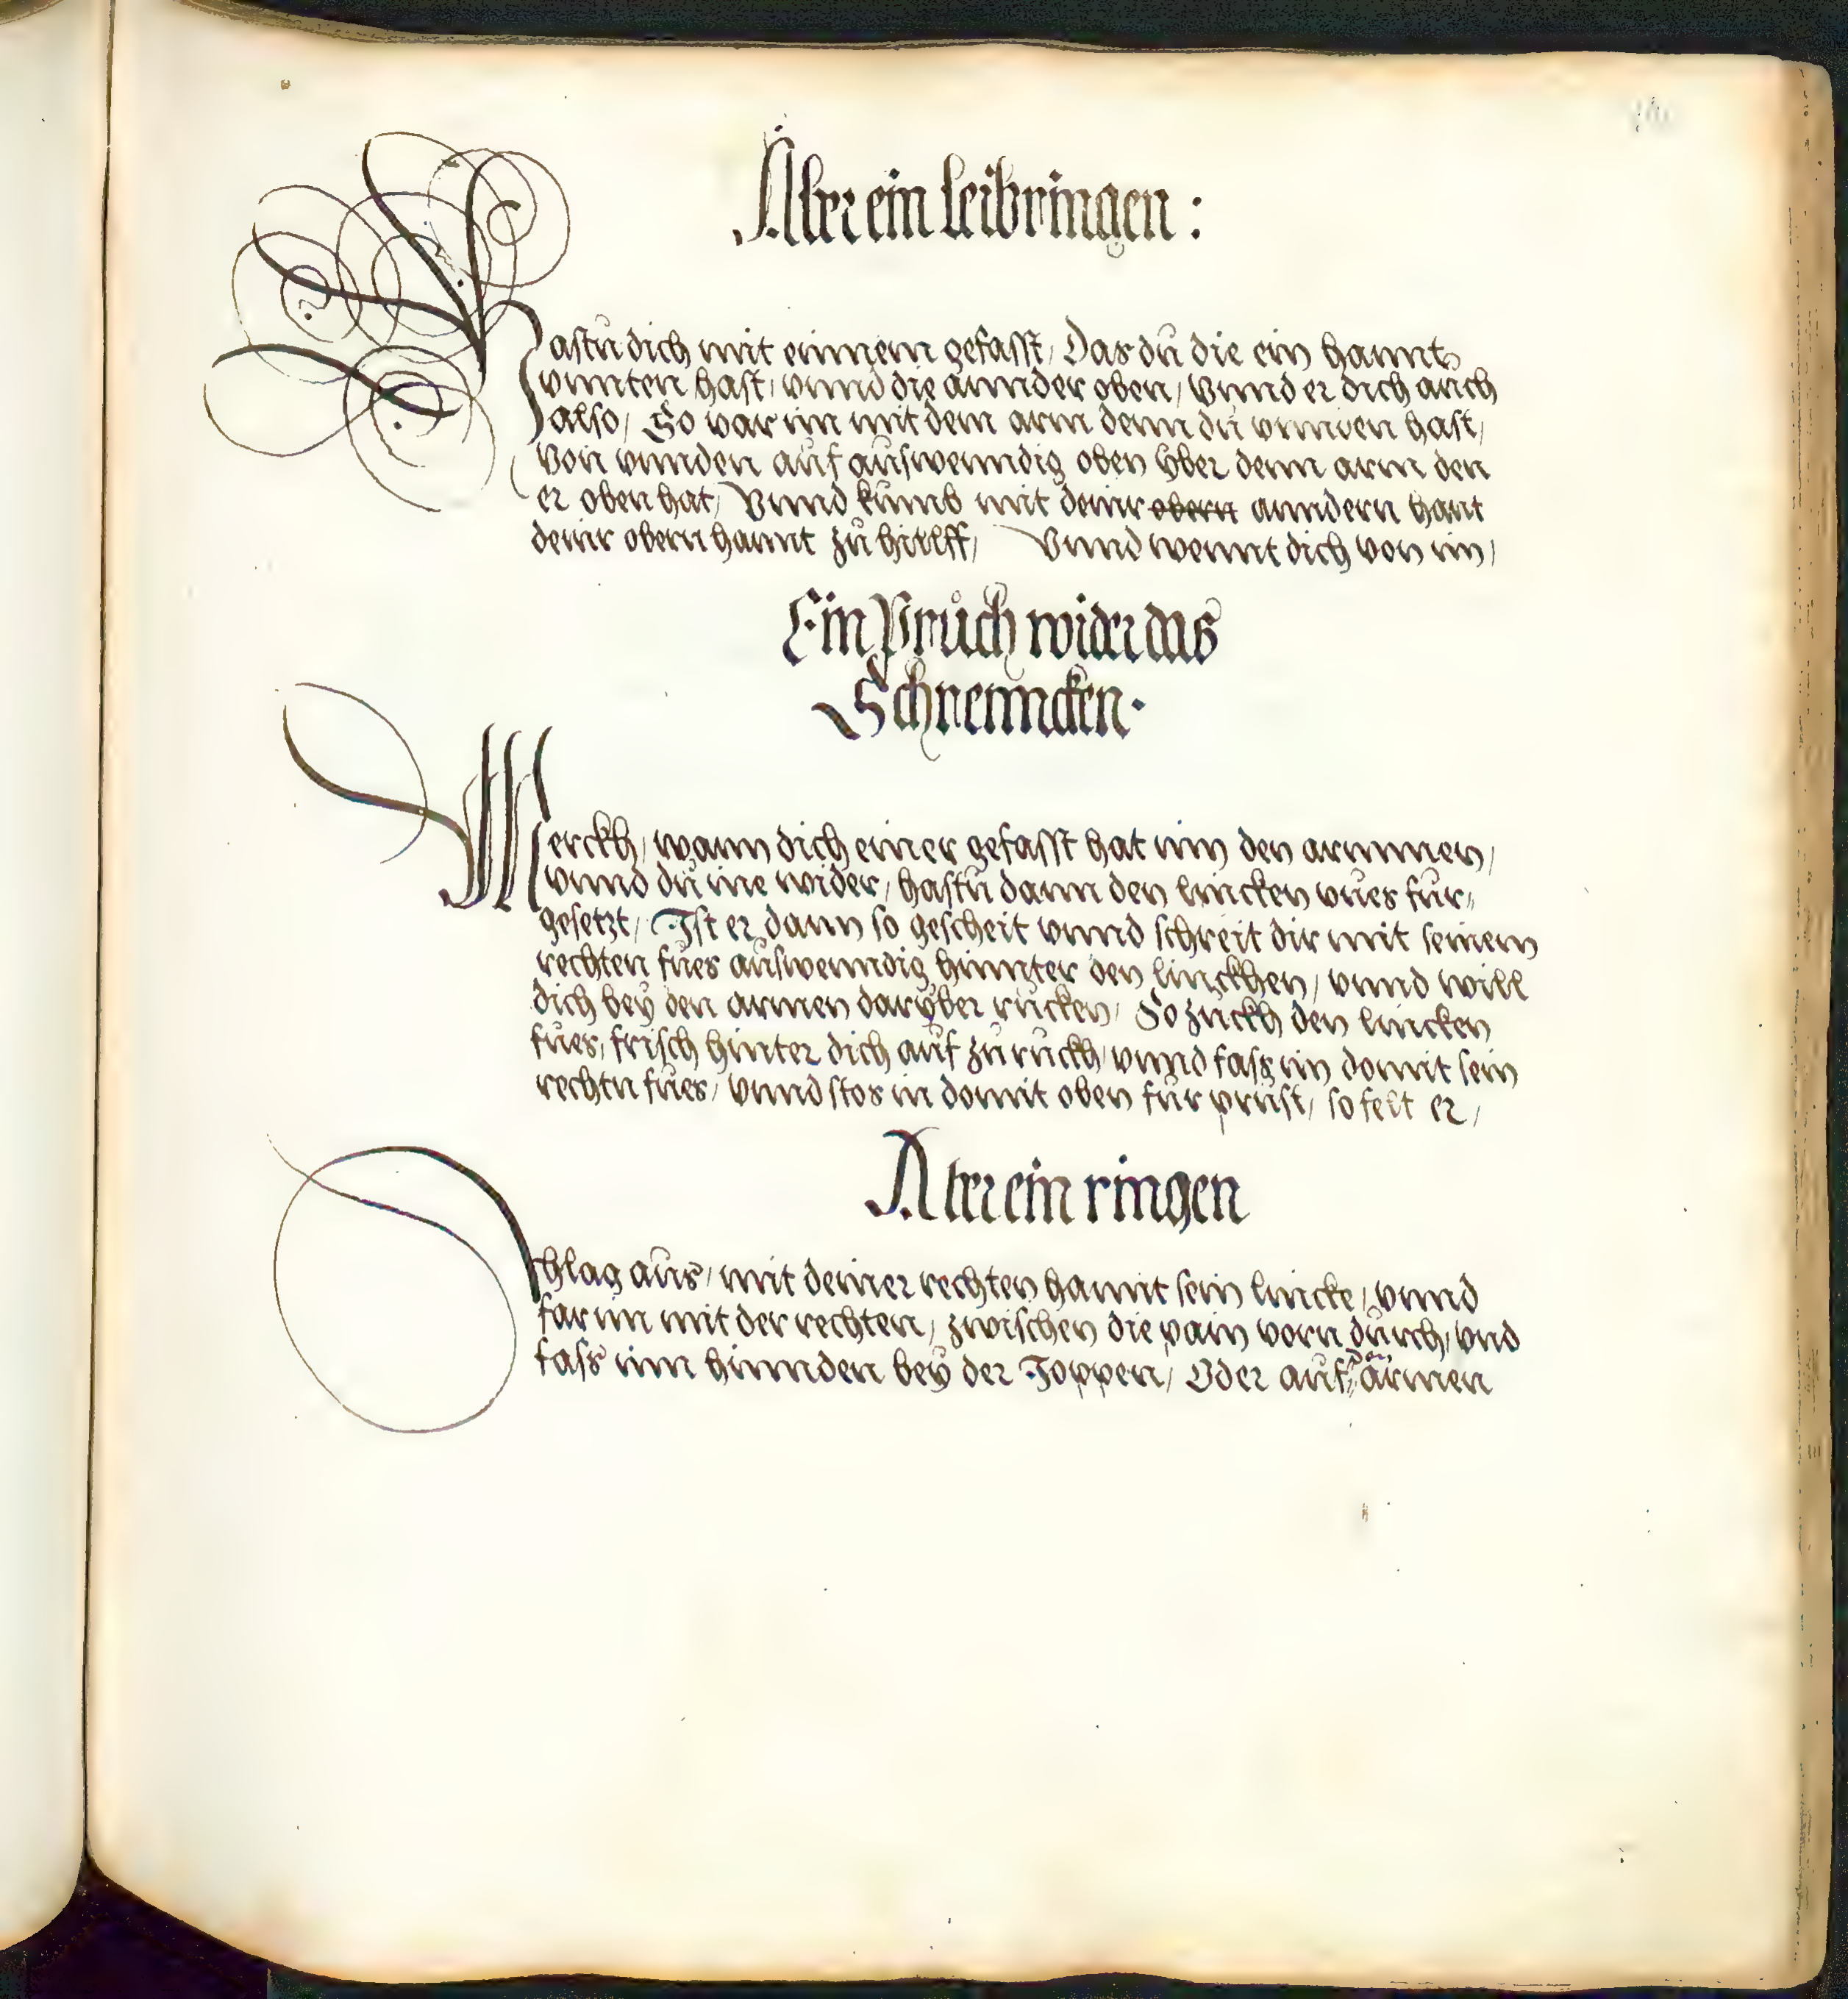 Aber ein leibringen :
Hastu dich mit einnem gefasst, Das du die ein hannt
vnnten hast, vnnd die annder oben, Vnnd er dich auch
also, So var im mit dem arm denn du vnnden hast,
Von vnnden auf auswenndig oben vber denn arm den
er oben hat, Vnnd kumb mit deinr obern anndern hant
deinr obern hannt zu hillff, Vnnd wennt dich von im,
Ein Pruch wider das
Schrenncken.
Merckh, wann dich einer gefasst hat inn den armmen,
vnnd du ine wider, hastu dann den lincken vues fur„
gesetzt, Ist er dann so gescheit vnnd schreit dir mit seinem
rechten fues auswenndig hinnter den linckhen, vnnd will
dich bey den armen daryber rucken, So zuckh den lincken
fues, frisch hinter dich auf zuruckh, vnnd fass im domit sein
rechtn fues, vnnd stos in domit oben fur prust, so felt er,
Aber ein ringen
Schlag aus, mit deiner rechten hannt sein lincke, vnnd
far im mit der rechten, zwischen die pain vorn durch, vnd
fass inn hinnden bey der Joppen, Oder auf den armen